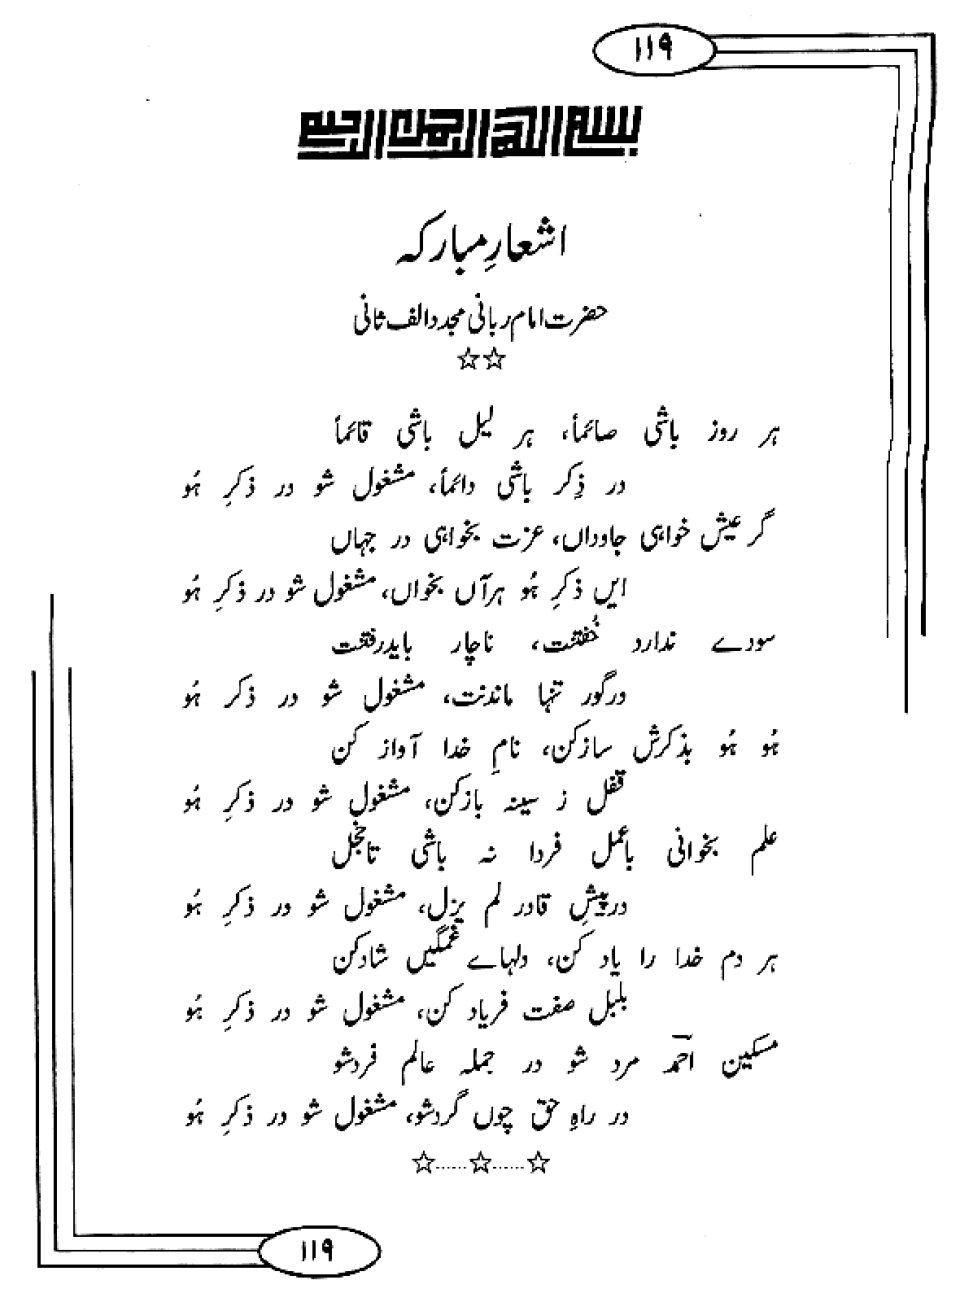 ۱۱۹
بسم الله الرحمن الرحیم
اشعارِ مبارکہ
حضرت امام ربانی مجدد الف ثانی
☆☆
ہر روز باشی صائماً، ہر لیل باشی قائماً
در ذِکر باشی دائماً، مشغول شو در ذکرِ ہُو
گر عیش خواہی جاوداں، عزت بخواہی در جہاں
ایں ذکرِ ہُو ہر آں بخواں، مشغول شو در ذکرِ ہُو
سودے ندارد خُفتنت، ناچار باید رفتنت
در گور تنہا ماندنت، مشغول شو در ذکر ہُو
ہُو ہُو بذکرش ساز کن، نامِ خدا آواز کن
قفل ز سینہ باز کن، مشغول شو در ذکرِ ہُو
علم بخوانی باعمل فردا نہ باشی تا خجل
در پیشِ قادر لم یزل، مشغول شو در ذکرِ ہُو
ہر دم خدا را یاد کن، دلہاے غمگیں شاد کن
بلبل صفت فریاد کن، مشغول شو در ذکرِ ہُو
مسکین احمد مرد شو در جملہ عالم فرد شو
در راہِ حق چوں گرد شو، مشغول شو در ذکرِ ہُو
☆......☆......☆
۱۱۹